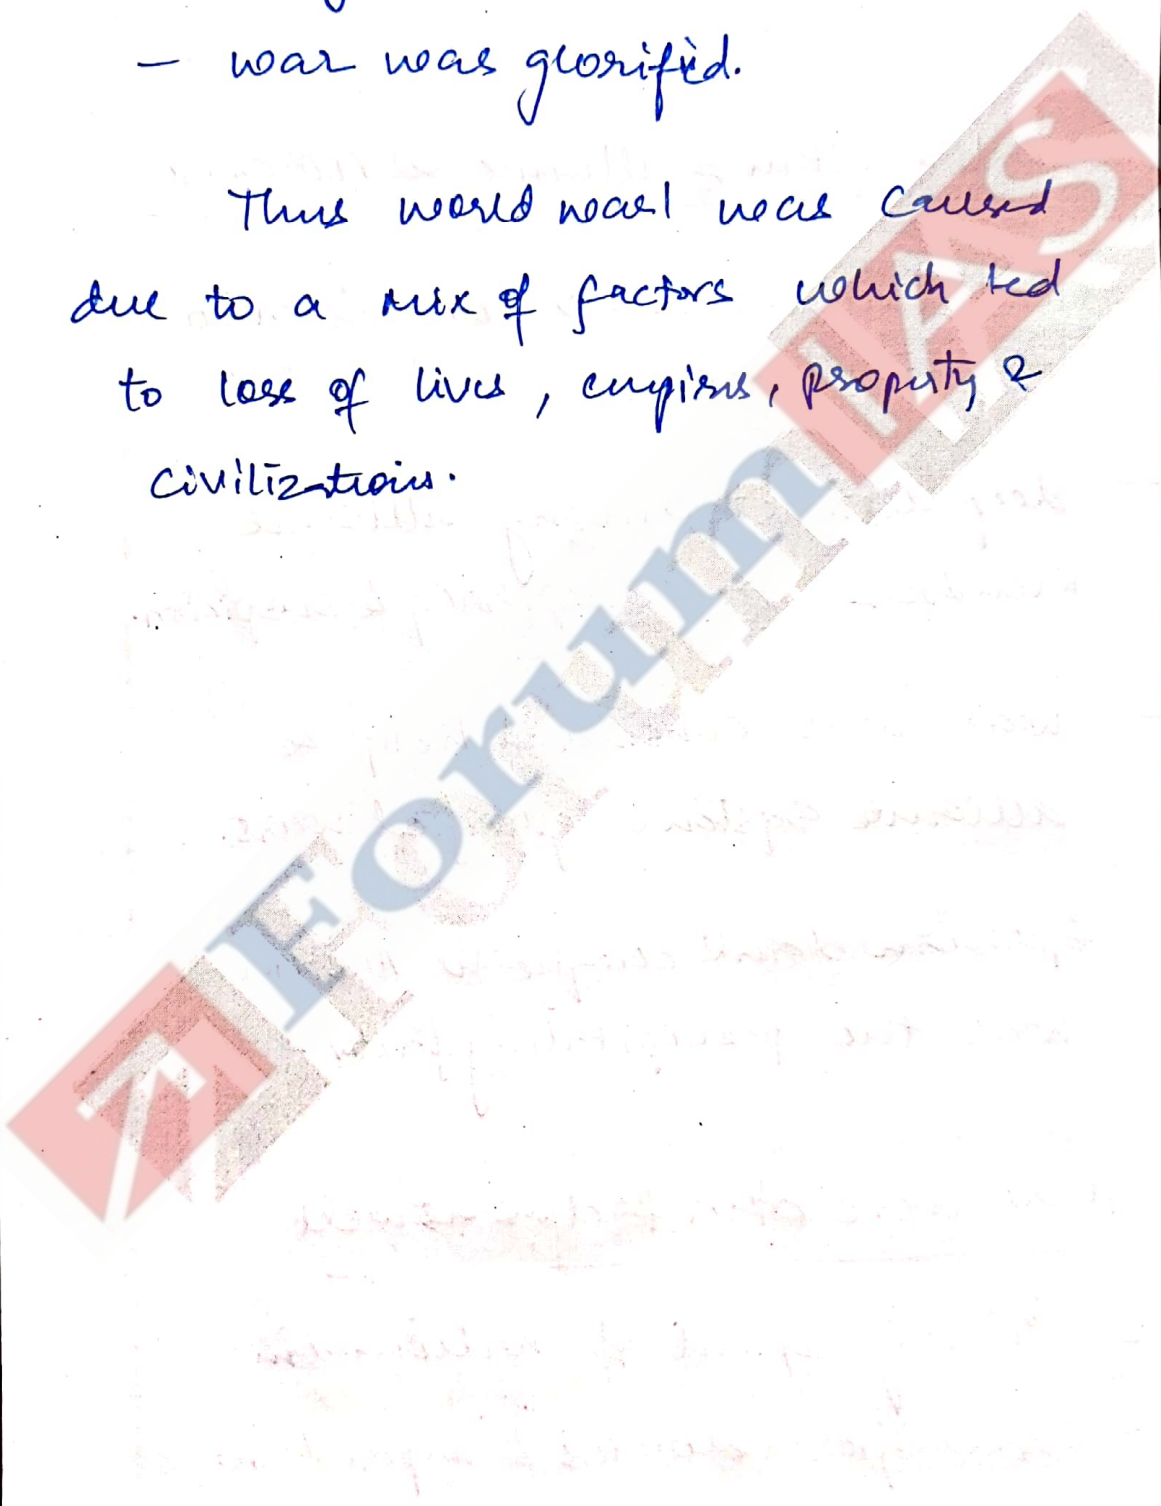 – war was glorified.
Thus world war 1 was caused
due to a mix of factors which led
to loss of lives, empires, property &
civilizations.
Forum IAS